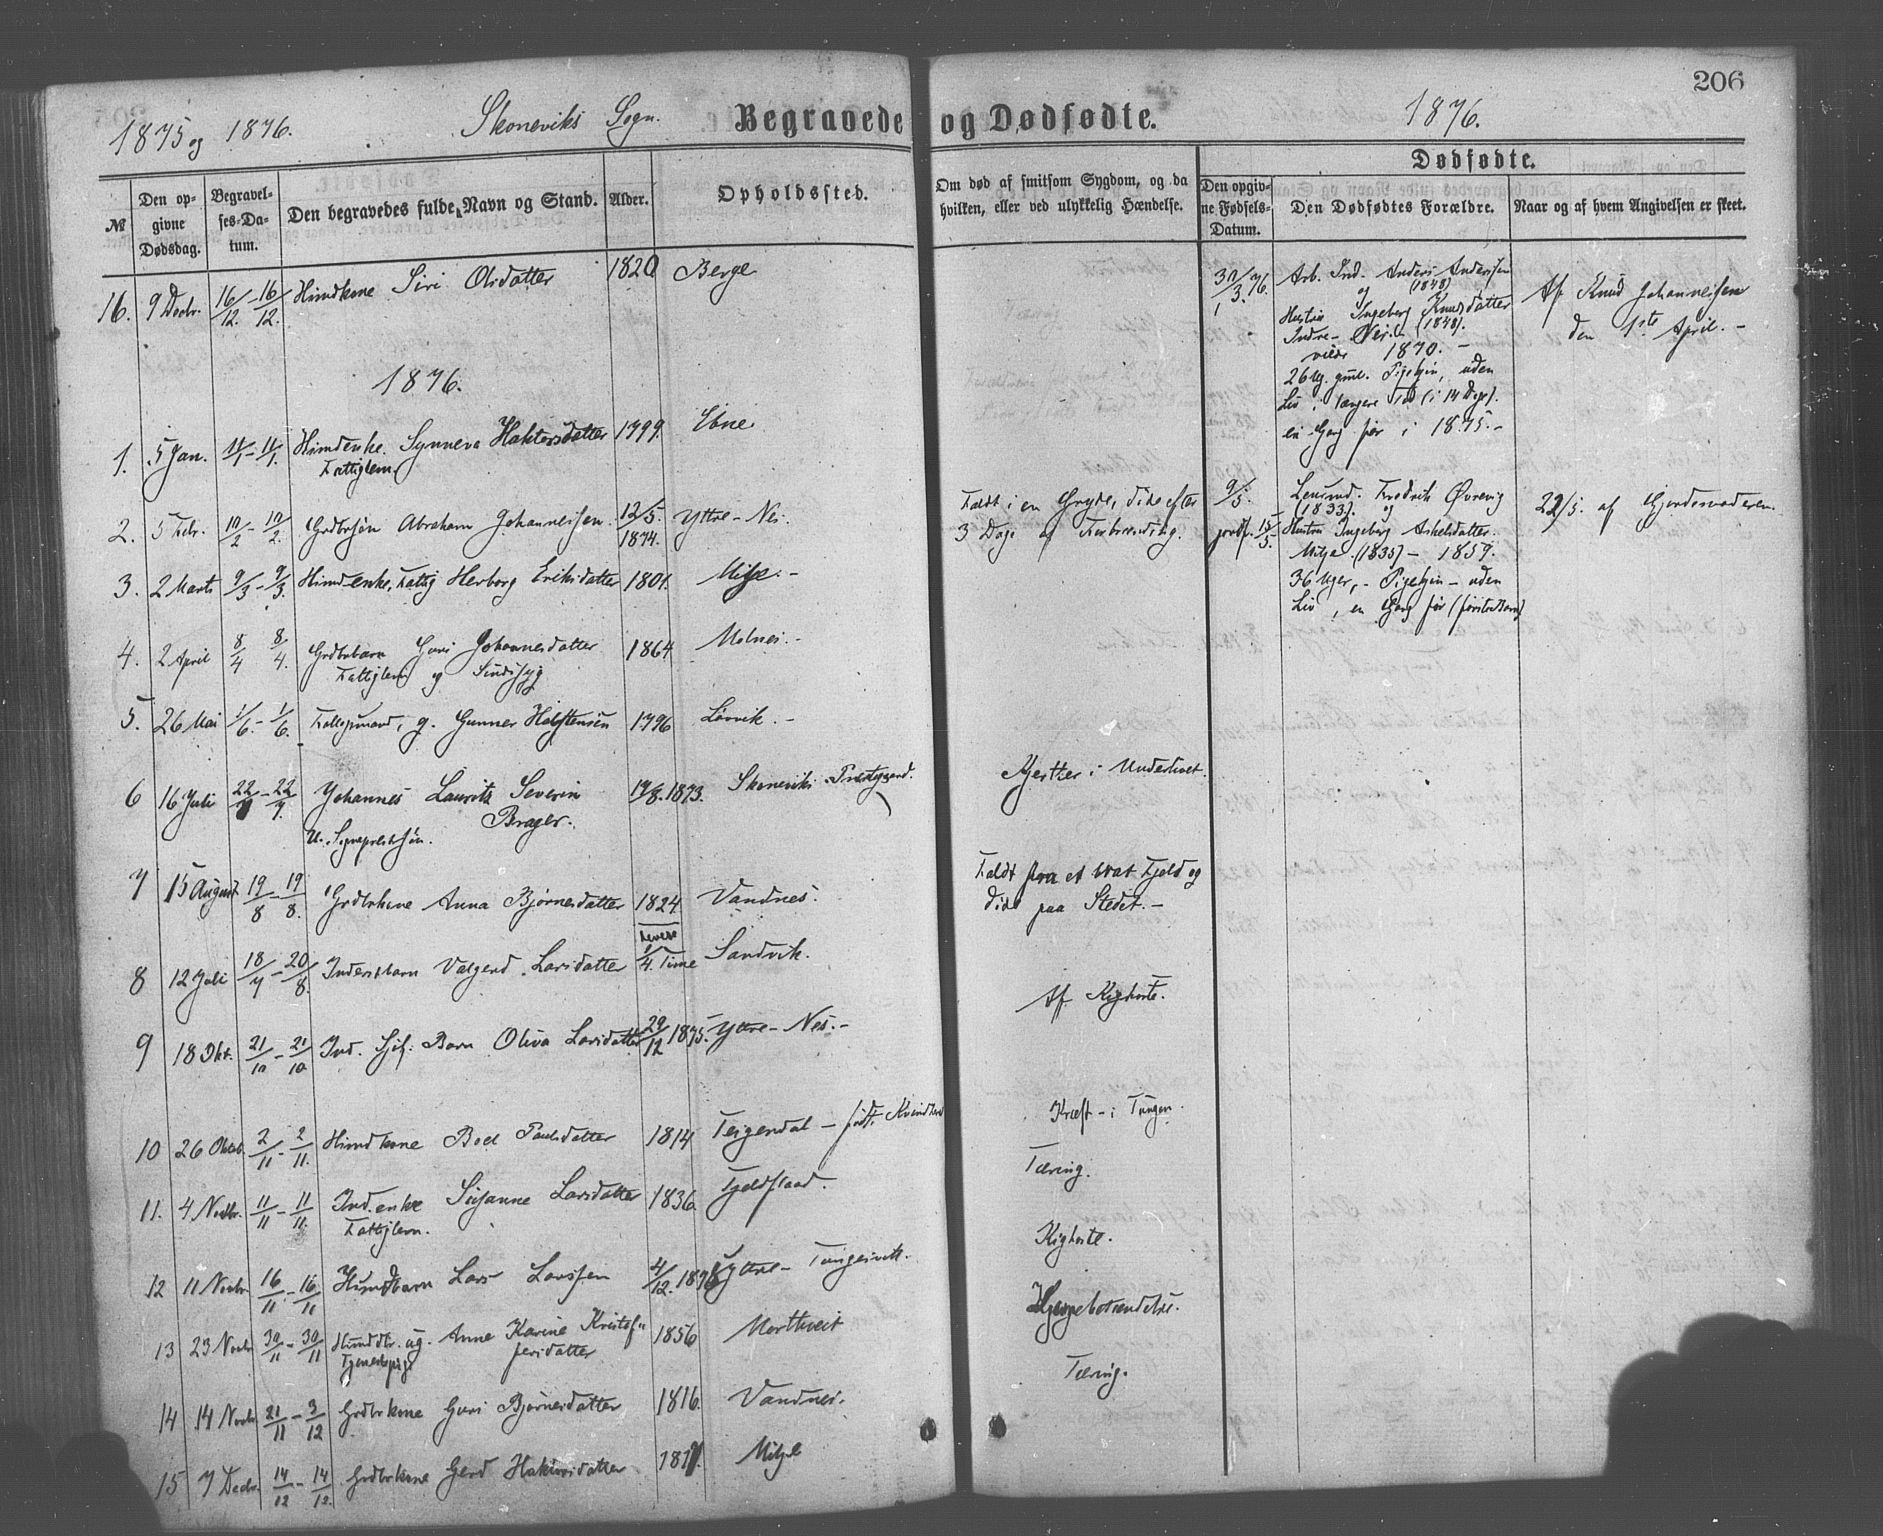 206
1875 og 1876. Skoneviks Sogn. Begravede og Dødfødte. 1876.
Dødfødte.
№
Den opgivne Dødsdag.
Begravelses-Datum.
Den begravedes fulde Navn og Stand.
Alder.
Opholdssted.
Om død af smitsom Sygdom, og da hvilken, eller ved ulykkelig Hændelse.
Den opgivne Fødsels-Datum.
Den Dødfødtes Forældre.
Naar og af hvem Angivelsen er skeet.
16. 9 Decbr. 16/12. – 16/12. Huusmdkone Siri Olsdatter 1820 Berge
1876.
1. 5 Jan. 11/1 – 11/1. Huusmdenke. Synneva Haktorsdatter 1799. Ebne
Fattiglem
2. 5 Febr. 10/2 – 10/2. Grdbrsøn Abraham Johannessen. 12/5. 1874. Yttre-Nes. Faldt i en Gryde, døde efter
3 Dage af Forbrænding.
3. 2 Marts 9/3 – 9/3. Huusmdenke, Fattig Herborg Eriksdatter 1801. Milje. –
4. 2 April 8/4 8/4. Grdbrbarn Guri Johannesdatter 1864 Molnes. –
Fattiglem og Sindssyg
5. 26 Mai 1/6. – 1/6. g. Gunner Halstensen 1796 Løvvik. –
6 16 Juli 22/7 – 22/7. Johannes Lauritz Severin 1873. Skoneviks Prestegaard. i Underlivet.
Brager.
U. Sognepræstsøn.
7 15 August 19/8 – 19/8. Grdbrkone Anna Bjørnesdatter 1824 Vandnes. Faldt fra et brat Fjeld og
døde paa Stedet. –
8 12 Juli 18/7 – 20/8. Inderstbarn Valgerd Larsdatter levede 1/4. Time Sandvik.
9 18 Okt. 21/10 – 21/10 Ind. Barn Oliva Larsdatter 29/12 1875. Yttre-Nes. – Af Kighoste.
10 26 Oktob. 2/11 – 2/11. Huusmdkone Boel Paulsdatter 1814 Teigendal – født i Kræft – i Tungen.
11. 4 Novbr. 11/11 – 11/11. Ind. enke Susanne Larsdatter 1836. Tjeldflaad. Tæring.
Fattiglem.
12 11 Novbr 16/11 – 16/11 Huusmdbarn Lars Larssen 4/12. Yttre- Tungesvik. Kighoste.
13 23 Novbr 30/11 – 30/11 Huusmddtr. ug. Anne Karine Kristof-
fersdatter 1856 Mortveit Hjernebetændelse.
Tjenestepige
14 14 Novbr 21/11 – 3/12 Grdbrkone Guri Bjørnesdatter 1816. Vandnes. Tæring.
15 7 Decbr. 14/12 – 14/12. Grdbrkone Gerd Haktorsdatter Milje
31/3. 76. Arb. Ind. Anders Anderssen
(1848)
og
Hustru Ingeborg Knudsdatter
Indre- (1848).
viede 1870. –
26 Ug. gml. Pigebjn, uden
Liv i længere Tid (i 14 Dage).
en Gang før i 1875. –
Af Knud Johannessen
den 1ste April. –
9/5. Fredrik Øvrevig
(1833). og
jordf. 15/5. Hustru Ingeborg Askelsdatter.
Milja. (1835) – 1859.
36 Uger, – Pigebjn – uden
Liv, en Gang før (første Barn)
22/5. af Gjordemoderen.